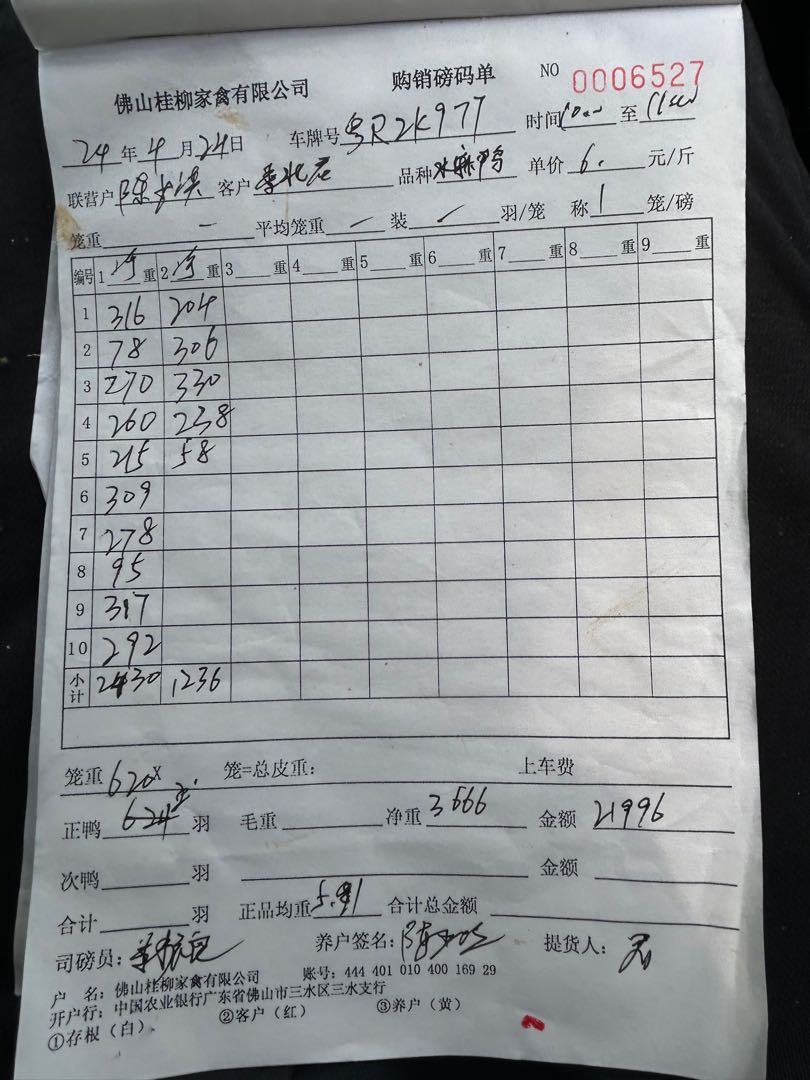 佛山桂柳家禽有限公司 购销磅码单 NO 0006527
24年4月24日 车牌号粤R2K977 时间 至
联营户 客户 品种水麻鸭 单价6. 元/斤
笼重 一 平均笼重 一 装 羽/笼 称1笼/磅
编号 1净重 2净重 3 重 4 重 5 重 6 重 7 重 8 重 9 重
1 316 204
2 78 306
3 270 330
4 260 238
5 215 58
6 309
7 278
8 95
9 317
10 292
小计 2430 1236
笼重620X 笼=总皮重: 上车费
正鸭624羽 毛重 净重3666 金额21996
次鸭 羽 金额
合计 羽 正品均重 合计总金额
司磅员: 养户签名: 提货人:
户 名: 佛山桂柳家禽有限公司 账号: 444 401 010 400 169 29
开户行: 中国农业银行广东省佛山市三水区三水支行
①存根（白） ②客户（红） ③养户（黄）